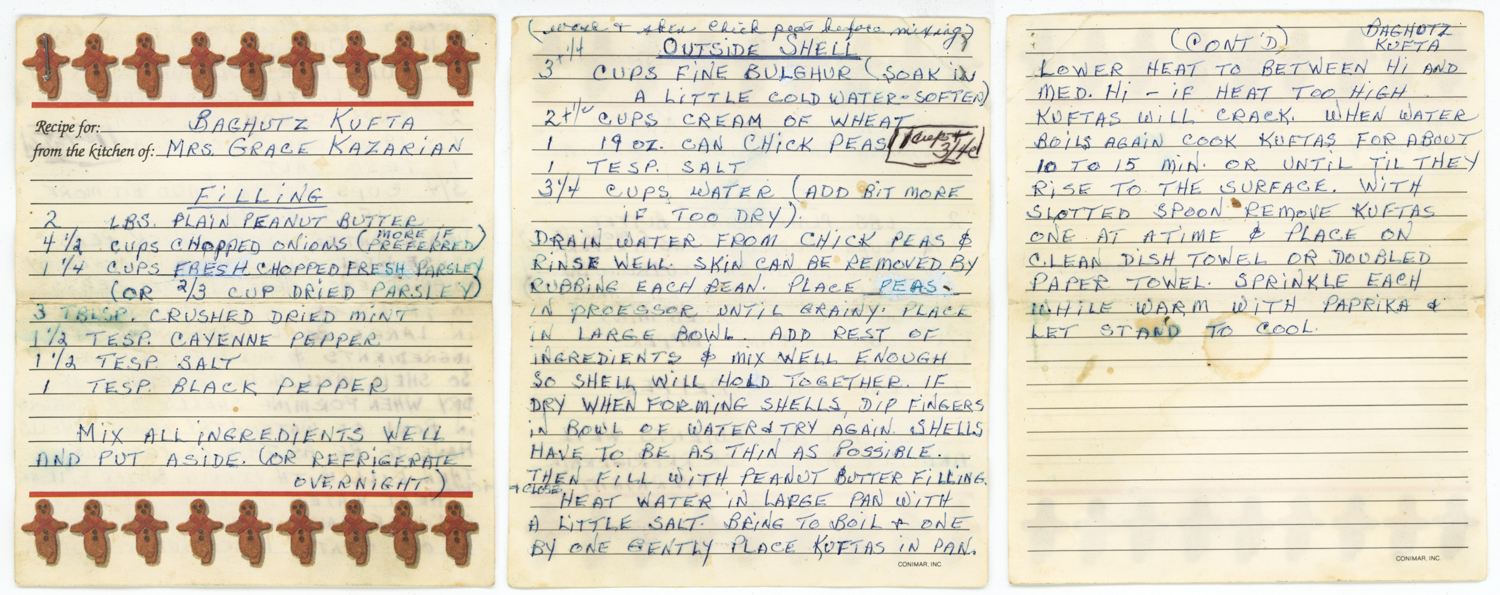 Recipe for: BAGHUTZ KUFTA
from the kitchen of: MRS. GRACE KAZARIAN
FILLING
2 LBS. PLAIN PEANUT BUTTER
4 1/2 CUPS CHOPPED ONIONS (MORE IF PREFERRED)
1 1/4 CUPS FRESH CHOPPED FRESH PARSLEY
(OR 2/3 CUP DRIED PARSLEY)
3 TBLSP. CRUSHED DRIED MINT
1 1/2 TESP. CAYENNE PEPPER
1 1/2 TESP SALT
1 TESP. BLACK PEPPER
MIX ALL INGREDIENTS WELL
AND PUT ASIDE. (OR REFRIGERATE
OVERNIGHT)
(wash & skin chick peas before mixing)
OUTSIDE SHELL
3 + 1/4 CUPS FINE BULGHUR (SOAK IN
A LITTLE COLD WATER - SOFTEN)
2 + 1/4 CUPS CREAM OF WHEAT
1 19 OZ. CAN CHICK PEAS 1 cup + 3/4 c
1 TESP. SALT
3 1/4 CUPS WATER (ADD BIT MORE
IF TOO DRY).
DRAIN WATER FROM CHICK PEAS &
RINSE WELL. SKIN CAN BE REMOVED BY
RUBBING EACH BEAN. PLACE PEAS
IN PROESSOR UNTIL GRAINY. PLACE
IN LARGE BOWL. ADD REST OF
INGREDIENTS & MIX WELL ENOUGH
SO SHELL WILL HOLD TOGETHER. IF
DRY WHEN FORMING SHELLS, DIP FINGERS
IN BOWL OF WATER & TRY AGAIN. SHELLS
HAVE TO BE AS THIN AS POSSIBLE.
THEN FILL WITH PEANUT BUTTER FILLING.
+ CLOSE
HEAT WATER IN LARGE PAN WITH
A LITTLE SALT. BRING TO BOIL & ONE
BY ONE GENTLY PLACE KUFTAS IN PAN.
CONIMAR, INC
(CONT'D) BAGHUTZ
KUFTA
LOWER HEAT TO BETWEEN Hi AND
MED. Hi - IF HEAT TOO HIGH
KUFTAS WILL CRACK. WHEN WATER
BOILS AGAIN COOK KUFTAS FOR ABOUT
10 TO 15 MIN. OR UNTIL TIL THEY
RISE TO THE SURFACE. WITH
SLOTTED SPOON REMOVE KUFTAS
ONE AT A TIME & PLACE ON
CLEAN DISH TOWEL OR DOUBLED
PAPER TOWEL. SPRINKLE EACH
WHILE WARM WITH PAPRIKA &
LET STAND TO COOL.
CONIMAR, INC.